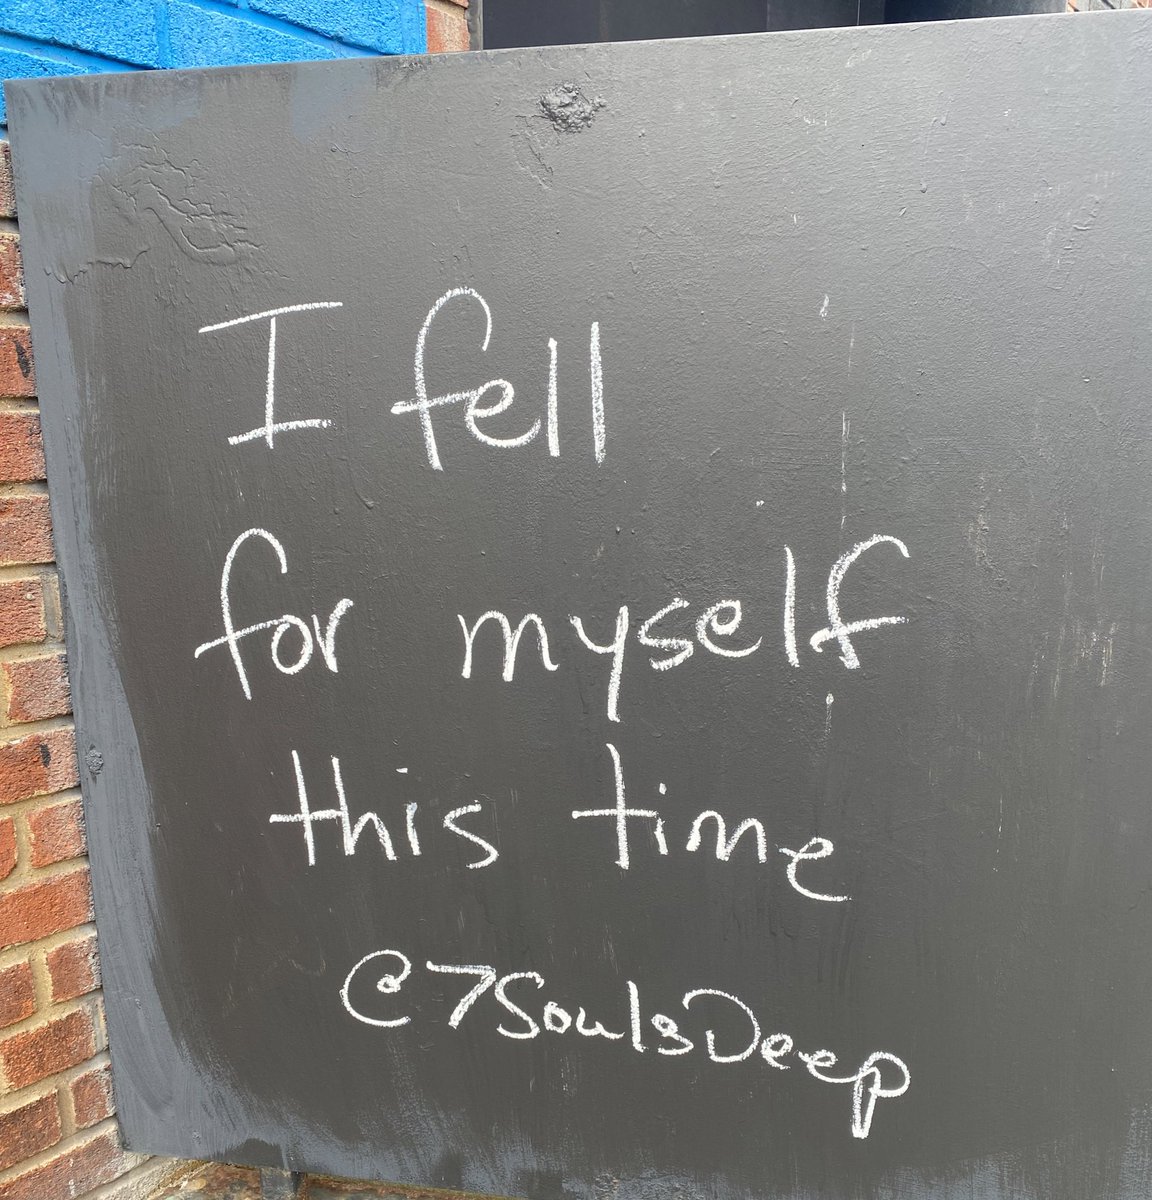 I fell
for myself
this time
@7SoulsDeep